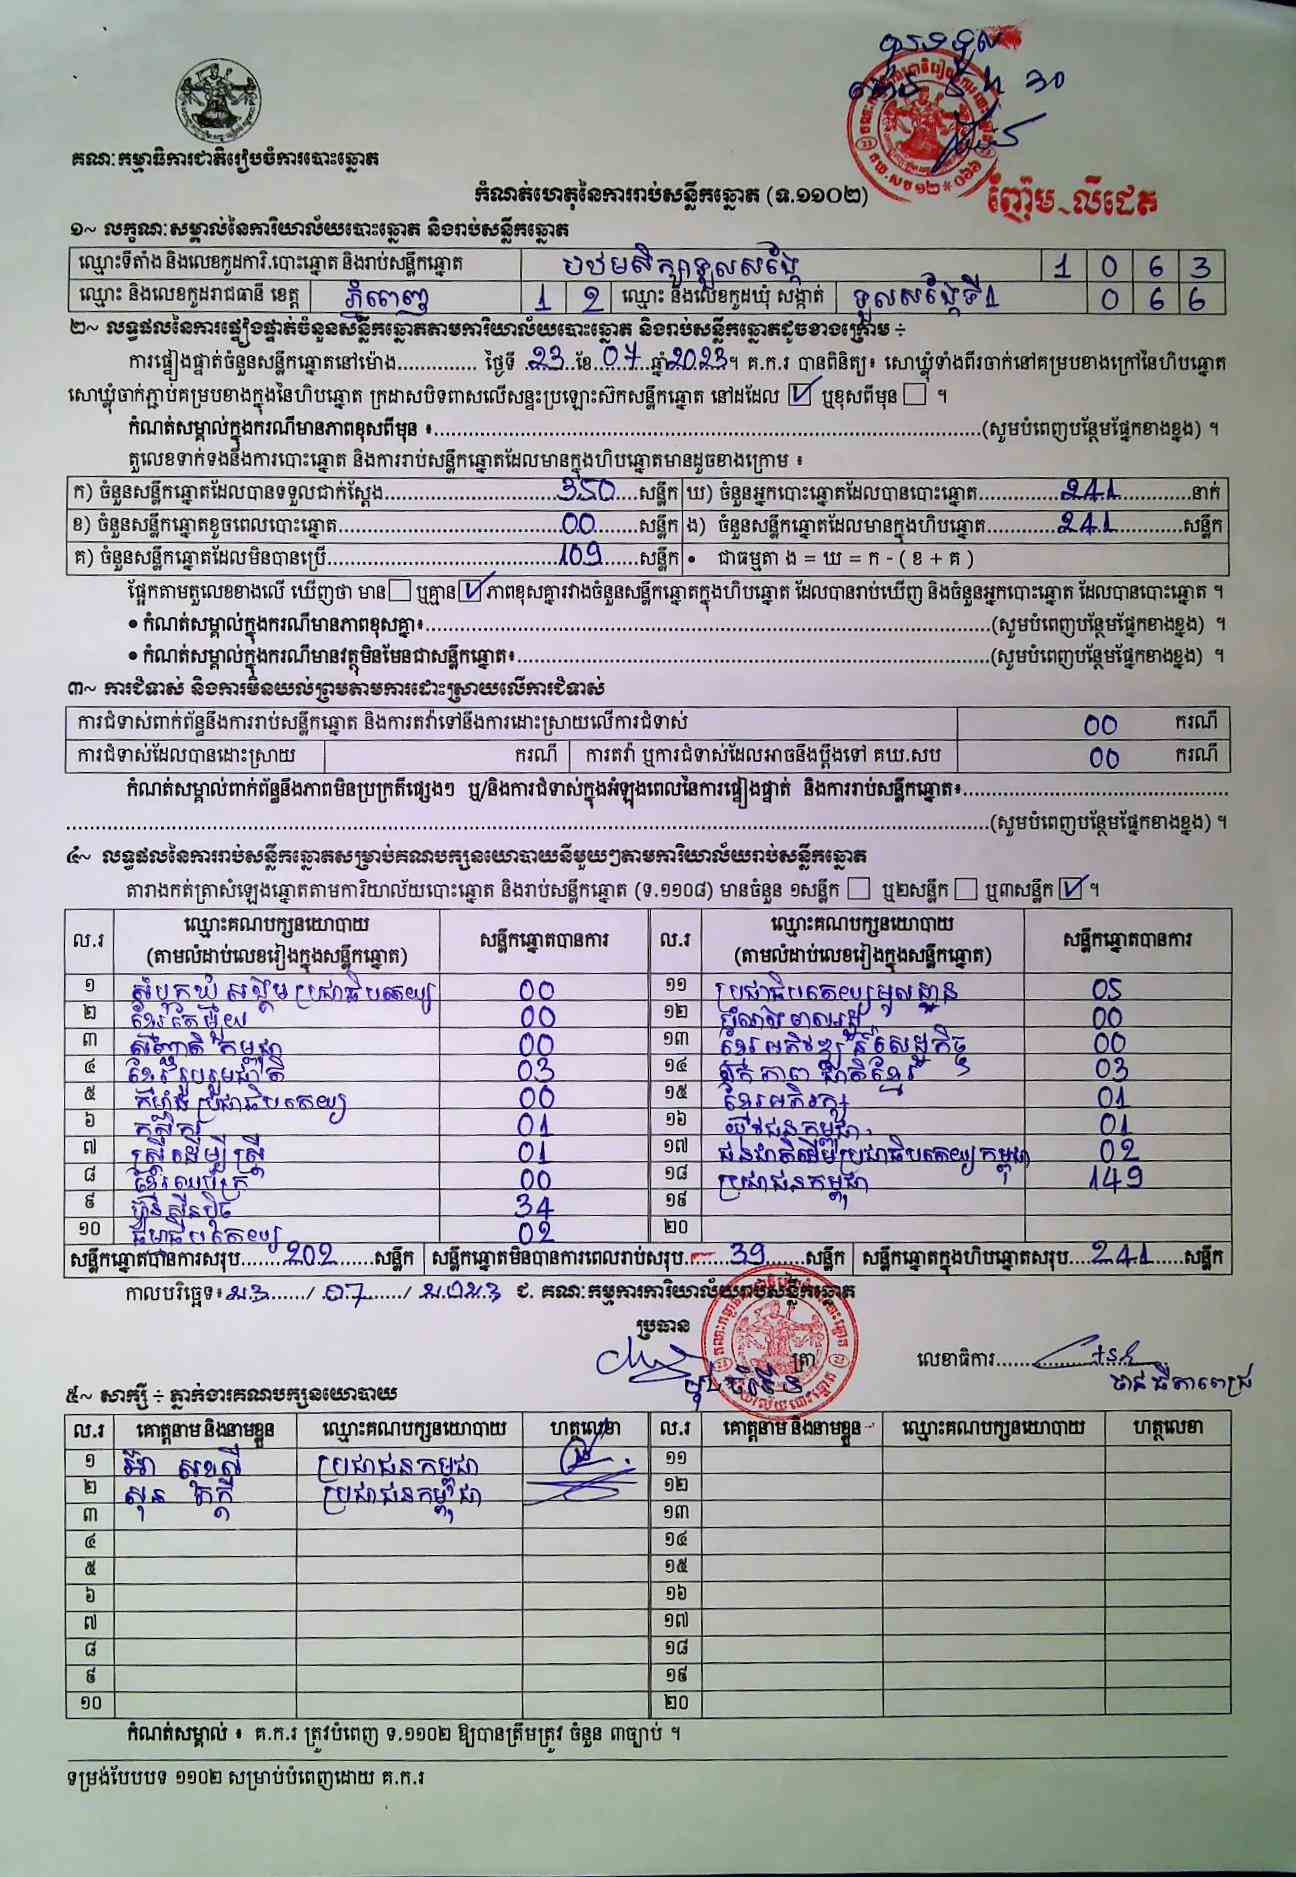 គណៈកម្មាធិការជាតិរៀបចំការបោះឆ្នោត
កំណត់ហេតុនៃការរាប់សន្លឹកឆ្នោត (ទ.១១០២)
ញ៉ែម លីដេត
១~ លក្ខណៈសម្គាល់នៃការិយាល័យបោះឆ្នោត និងរាប់សន្លឹកឆ្នោត
ឈ្មោះទីតាំង និងលេខកូដការិ.បោះឆ្នោត និងរាប់សន្លឹកឆ្នោត បឋមសិក្សាទួលសង្កែ 1 0 6 3
ឈ្មោះ និងលេខកូដរាជធានី ខេត្ត ភ្នំពេញ 1 2 ឈ្មោះ និងលេខកូដឃុំ សង្កាត់ ទួលសង្កែទី1 0 6 6
២~ លទ្ធផលនៃការផ្ទៀងផ្ទាត់ចំនួនសន្លឹកឆ្នោតតាមការិយាល័យបោះឆ្នោត និងរាប់សន្លឹកឆ្នោតដូចខាងក្រោម ÷
ការផ្ទៀងផ្ទាត់ចំនួនសន្លឹកឆ្នោតនៅម៉ោង.............. ថ្ងៃទី 23 ខែ 07 ឆ្នាំ 2023។ គ.ក.រ បានពិនិត្យ៖ សោឃ្លុំទាំងពីរចាក់នៅគម្របខាងក្រៅនៃហិបឆ្នោត
សោឃ្លុំចាក់ភ្ជាប់គម្របខាងក្នុងនៃហិបឆ្នោត ក្រដាសបិទពាសលើសន្ទះប្រឡោះស៊កសន្លឹកឆ្នោត នៅដដែល ☑ ឬខុសពីមុន ☐ ។
កំណត់សម្គាល់ក្នុងករណីមានភាពខុសពីមុន ៖..............................(សូមបំពេញបន្ថែមផ្នែកខាងខ្នង) ។
តួលេខទាក់ទងនឹងការបោះឆ្នោត និងការរាប់សន្លឹកឆ្នោតដែលមានក្នុងហិបឆ្នោតមានដូចខាងក្រោម ៖
ក) ចំនួនសន្លឹកឆ្នោតដែលបានទទួលជាក់ស្តែង 350 សន្លឹក ឃ) ចំនួនអ្នកបោះឆ្នោតដែលបានបោះឆ្នោត 241 នាក់
ខ) ចំនួនសន្លឹកឆ្នោតខូចពេលបោះឆ្នោត 00 សន្លឹក ង) ចំនួនសន្លឹកឆ្នោតដែលមានក្នុងហិបឆ្នោត 241 សន្លឹក
គ) ចំនួនសន្លឹកឆ្នោតដែលមិនបានប្រើ 109 សន្លឹក • ជាធម្មតា ង = ឃ = ក - ( ខ + គ )
ផ្អែកតាមតួលេខខាងលើ ឃើញថា មាន ☐ ឬគ្មាន ☑ ភាពខុសគ្នារវាងចំនួនសន្លឹកឆ្នោតក្នុងហិបឆ្នោត ដែលបានរាប់ឃើញ និងចំនួនអ្នកបោះឆ្នោត ដែលបានបោះឆ្នោត ។
• កំណត់សម្គាល់ក្នុងករណីមានភាពខុសគ្នា៖..............................(សូមបំពេញបន្ថែមផ្នែកខាងខ្នង) ។
• កំណត់សម្គាល់ក្នុងករណីមានវត្ថុមិនមែនជាសន្លឹកឆ្នោត៖..............................(សូមបំពេញបន្ថែមផ្នែកខាងខ្នង) ។
៣~ ការជំទាស់ និងការមិនយល់ព្រមតាមការដោះស្រាយលើការជំទាស់
ការជំទាស់ពាក់ព័ន្ធនឹងការរាប់សន្លឹកឆ្នោត និងការតវ៉ាទៅនឹងការដោះស្រាយលើការជំទាស់ 00 ករណី
ការជំទាស់ដែលបានដោះស្រាយ ករណី ការតវ៉ា ឬការជំទាស់ដែលអាចនឹងប្តឹងទៅ គឃ.សប 00 ករណី
កំណត់សម្គាល់ពាក់ព័ន្ធនឹងភាពមិនប្រក្រតីផ្សេងៗ ឬ/និងការជំទាស់ក្នុងអំឡុងពេលនៃការផ្ទៀងផ្ទាត់ និងការរាប់សន្លឹកឆ្នោត៖..............................
..............................(សូមបំពេញបន្ថែមផ្នែកខាងខ្នង) ។
៤~ លទ្ធផលនៃការរាប់សន្លឹកឆ្នោតសម្រាប់គណបក្សនយោបាយនីមួយៗតាមការិយាល័យរាប់សន្លឹកឆ្នោត
តារាងកត់ត្រាសំឡេងឆ្នោតតាមការិយាល័យបោះឆ្នោត និងរាប់សន្លឹកឆ្នោត (ទ.១១០៨) មានចំនួន ១សន្លឹក ☐ ឬ២សន្លឹក ☐ ឬ៣សន្លឹក ☑ ។
ល.រ ឈ្មោះគណបក្សនយោបាយ (តាមលំដាប់លេខរៀងក្នុងសន្លឹកឆ្នោត) សន្លឹកឆ្នោតបានការ ល.រ ឈ្មោះគណបក្សនយោបាយ (តាមលំដាប់លេខរៀងក្នុងសន្លឹកឆ្នោត) សន្លឹកឆ្នោតបានការ
១ សំបុកឃ្មុំសង្គមប្រជាធិបតេយ្យ 00 ១១ ប្រជាធិបតេយ្យមូលដ្ឋាន 05
២ ខ្មែរតែមួយ 00 ១២ 00
៣ សញ្ជាតិកម្ពុជា 00 ១៣ ខ្មែរអភិវឌ្ឍន៍សេដ្ឋកិច្ច 00
៤ ខ្មែររួបរួមជាតិ 03 ១៤ ឯកភាពជាតិខ្មែរ 03
៥ កម្លាំងប្រជាធិបតេយ្យ 00 ១៥ ខ្មែរអភិរក្ស 01
៦ កសិករ 01 ១៦ យុវជនកម្ពុជា 01
៧ ស្ត្រីដើម្បីស្ត្រី 01 ១៧ ជនជាតិដើមប្រជាធិបតេយ្យកម្ពុជា 02
៨ ខ្មែរឈប់ក្រ 00 ១៨ ប្រជាជនកម្ពុជា 149
៩ ហ៊្វុនស៊ិនប៉ិច 34 ១៩
១០ ធម្មាធិបតេយ្យ 02 ២០
សន្លឹកឆ្នោតបានការសរុប 202 សន្លឹក សន្លឹកឆ្នោតមិនបានការពេលរាប់សរុប 39 សន្លឹក សន្លឹកឆ្នោតក្នុងហិបឆ្នោតសរុប 241 សន្លឹក
កាលបរិច្ឆេទ៖ ២៣ / 07 / ២០២៣ ជ. គណៈកម្មការការិយាល័យរាប់សន្លឹកឆ្នោត
ប្រធាន
ត្រា លេខាធិការ
៥~ សាក្សី ÷ ភ្នាក់ងារគណបក្សនយោបាយ
ល.រ គោត្តនាម និងនាមខ្លួន ឈ្មោះគណបក្សនយោបាយ ហត្ថលេខា ល.រ គោត្តនាម និងនាមខ្លួន ឈ្មោះគណបក្សនយោបាយ ហត្ថលេខា
១ ប្រជាជនកម្ពុជា ១១
២ សុន ភក្តី ប្រជាជនកម្ពុជា ១២
៣ ១៣
៤ ១៤
៥ ១៥
៦ ១៦
៧ ១៧
៨ ១៨
៩ ១៩
១០ ២០
កំណត់សម្គាល់ ៖ គ.ក.រ ត្រូវបំពេញ ទ.១១០២ ឱ្យបានត្រឹមត្រូវ ចំនួន ៣ច្បាប់ ។
ទម្រង់បែបបទ ១១០២ សម្រាប់បំពេញដោយ គ.ក.រ